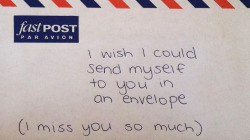 fast POST
PAR AVION
I wish I could
send myself
to you in
an envelope
(I miss you so much)